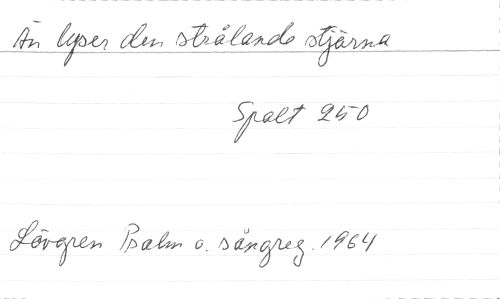 Än lyser den strålande stjärna
Spalt 250
Lövgren Psalm o. sångreg. 1964